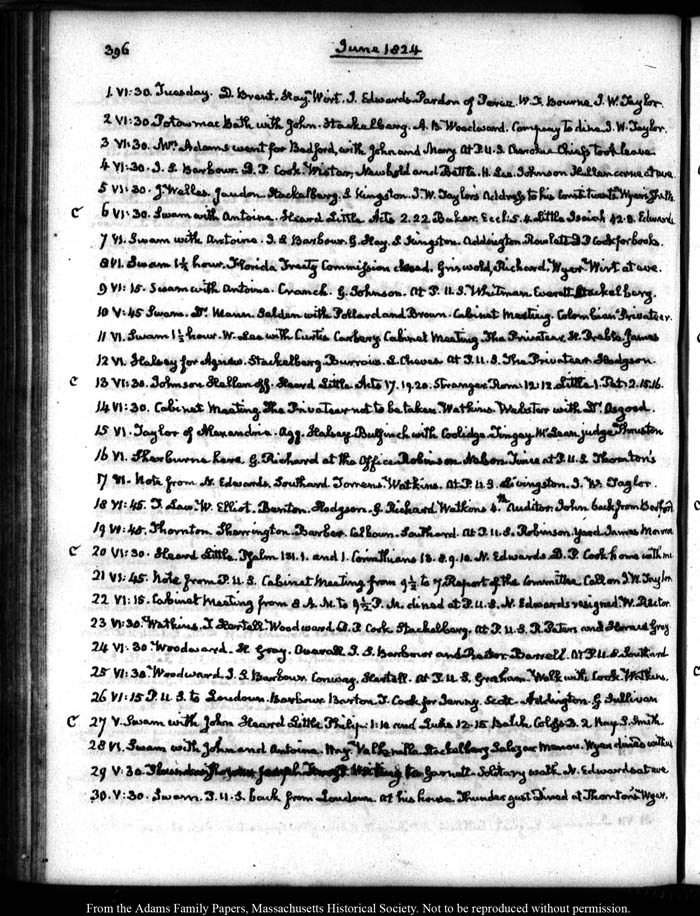 396
June 1824
1 VI:30. Tuesday. D. Brent. Hay. Wirt. J. Edwards Pardon of Perez. W. F. Bourne J. W. Taylor.
2 VI:30 Potowmac Bath with John. Stackelberg. A. B. Woodward. Company to dine J. W. Taylor.
3 VI:30. Mrs. Adams went for Bedford, with John and Mary At P.U.S. Cherokee Chiefs took leave.
4 VI:30. J. S. Barbour. D. P. Cook. Wistar, Newbold and Bettle. H. Lee. Johnson Hellen came at eve.
5 VI:30. J. Welles. Jaudon Stackelberg. S Kingston. J. W. Taylor's Address to his Constituents Wyer
C 6 VI:30. Swam with Antoine. Heard Little Acts 2.22 Baker Eccl: 5.4. Little Isaiah 42.8. Edwards
7 VI. Swam with Antoine. J. S Barbour. G. Hay. S Kingston. Addington Rowlett D P Cook for books.
8 VI. Swam 1½ hour. Florida Treaty Commission closed. Griswold, Richard. Wyer Wirt at eve.
9 VI:15. Swam with Antoine. Cranch. G. Johnson. At P.U.S. Whitman Everett Stackelberg.
10 V:45 Swam. Dr. Mann Selden with Pollard and Brown. Cabinet Meeting. Colombian Privateer.
11 VI. Swam 1½ hour. W. Lee with Curtis Carbery Cabinet Meeting. The Privateer. H. Preble James
12 VI. Halsey for Agnew. Stackelberg Burrows. L. Cheves At P.U.S. The Privateer Hodgson.
C 13 VII:30. Johnson Hellen off. Heard Little. Acts 17.19.20. Stranger Rom: 12:12. Little 1. Pet: 2.15.16.
14 VI:30. Cabinet Meeting The Privateer not to be taken Watkins. Webster with Dr. Osgood.
15 VI. Taylor of Alexandria. Agg. Halsey Bulfinch with Coolidge. Tingey McLean judge Thruston
16 VI. Sherburne here. G. Richard at the Office Robinson Nelson Jones at P.U.S Thornton's
17 VI. Note from N. Edwards. Southard Torrens Watkins. At P.U.S. Livingston. J. W. Taylor.
18 VI:45. T. Law. W. Elliot. Benton. Hodgson. G. Richard Watkins 4th. Auditor. John back from Bedford
19 VI:45. Thornton Sherrington Barber. Calhoun. Southard. At P.U.S. Robinson. James Monroe
C 20 VII:30. Heard Little. Psalm 131.1. and 1. Corinthians 13.8.9.10. N. Edwards D. P. Cook home with me
21 VI:45. Note from P.U.S. Cabinet Meeting from 9½ to 7. Report of the Committee. Call on J. W. Taylor
22 VI:15. Cabinet Meeting from 8 A.M. to 9½ P.M. dined at P.U.S. N. Edwards resigned W. Rector.
23 VI:30. Watkins. T Hertell. Woodward D. P. Cook Stackelberg. At P.U.S. R. Peters and Horace Gray
24 VI:30 Woodward. H Gray. Overall J. S. Barbour and Rector Barrell. At P.U.S. Southard
25 VI:30. Woodward J. S Barbour. Conway. Hertell. At P.U.S. Graham. Walk with Cook Watkins.
26 VI:15 P.U.S. to Loudoun. Barbour Barton. T. Cook for Scott. Addington. G Sullivan
C 27 V. Swam with John Heard Little. Philip: 1:10 and Luke 12.15 Balch. Coloss: 3.2 Hay S. Smith.
28 VI. Swam with John and Antoine. Stackelberg Salazar Menou. Wyer dined with us
29 V:30. Garnett Solitary walk. N. Edwards at eve
30. V:30. Swam. P.U.S. back from Loudoun At his house. Thunder gust Dined at Thornton's Wyer.
From the Adams Family Papers, Massachusetts Historical Society. Not to be reproduced without permission.